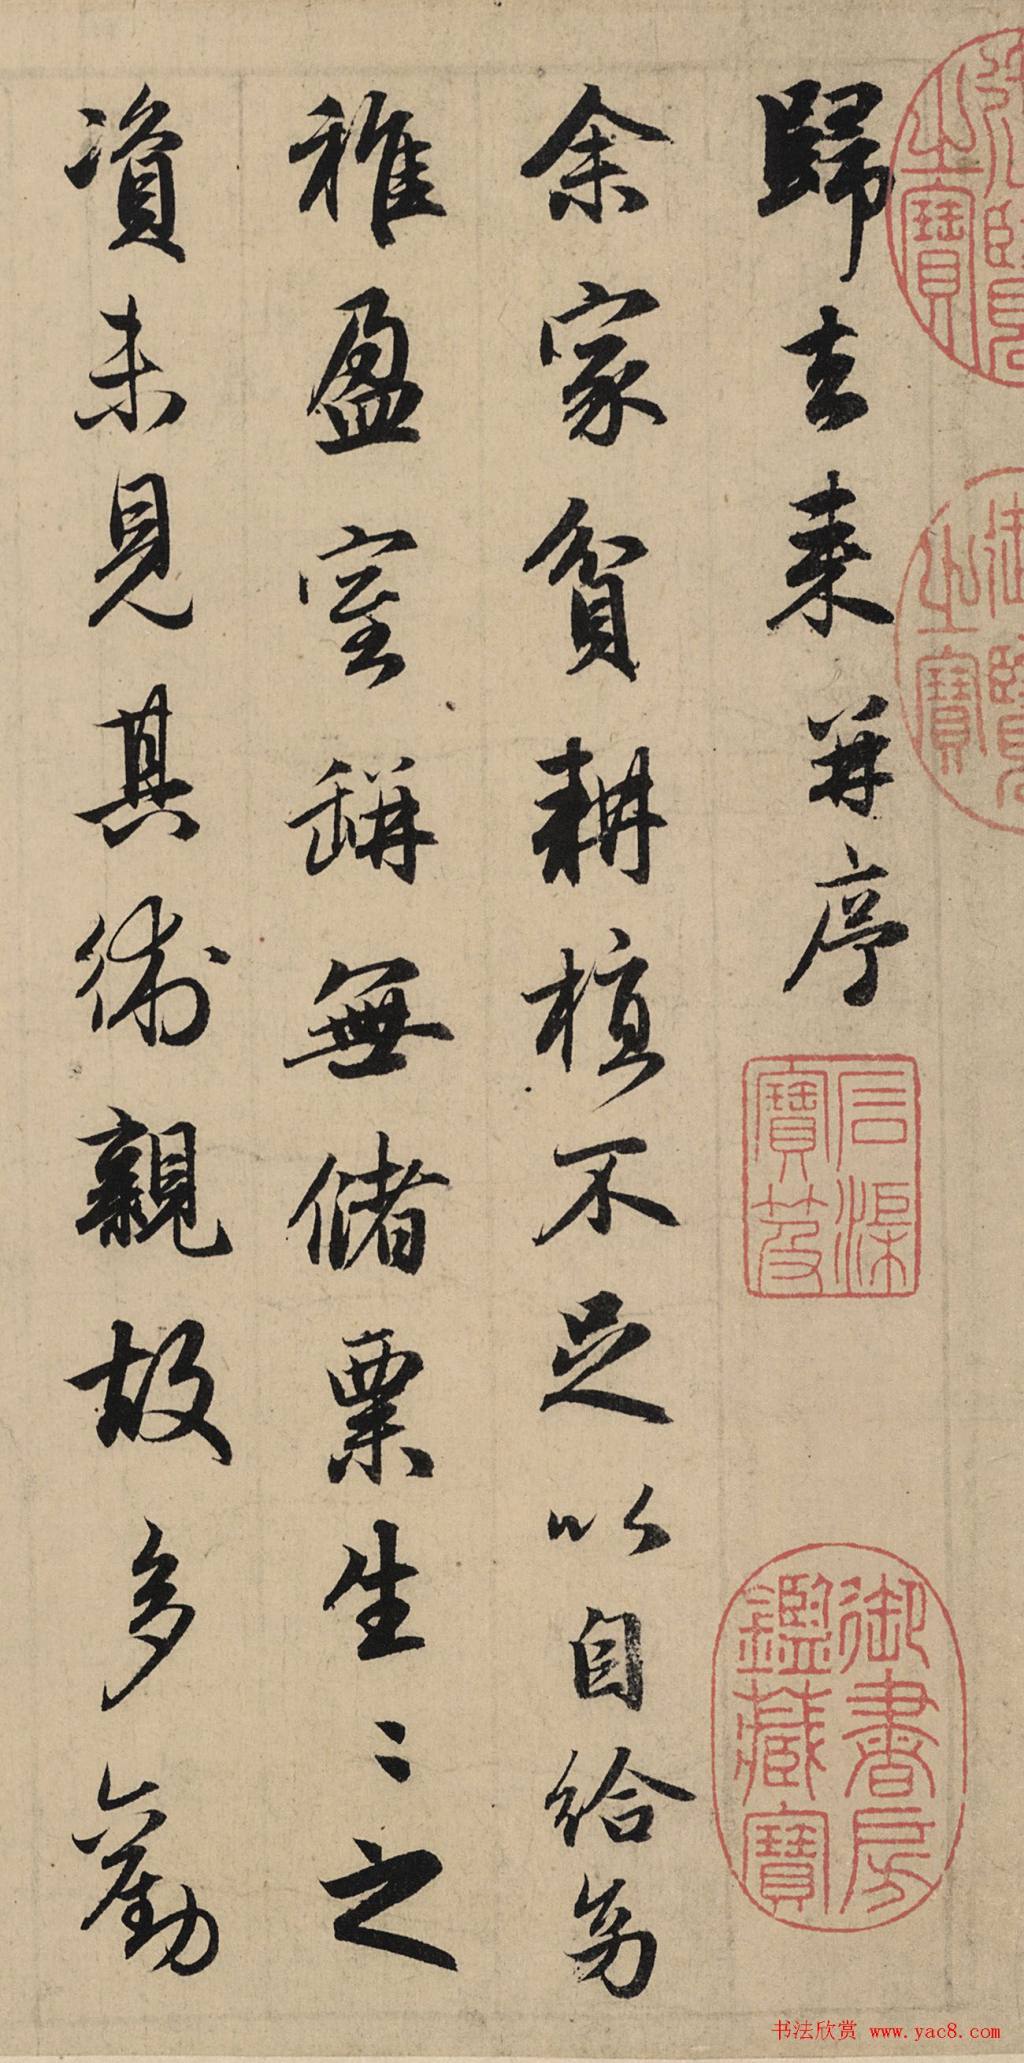 御覽之寶
御覽之寶
歸去來并序
石渠寶笈
御書房鑑藏寶
余家貧耕植不足以自給幼
稚盈室缾無儲粟生〻之
資未見其術親故多勸
书法欣赏 www.yac8.com